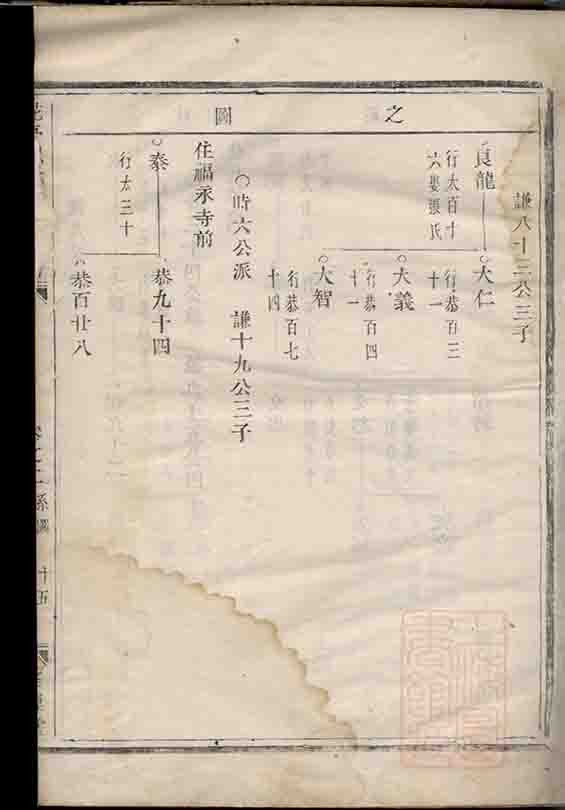 之
圖
謙八十三公三子
良龍
行太百十
六娶張氏
○大仁
行恭百三
十一
○大義
行恭百四
十一
○大智
行恭百七
十四
○時六公派 謙十九公三子
住福永寺前
○泰
行太三十
恭九十四
恭百廿八
系
十五